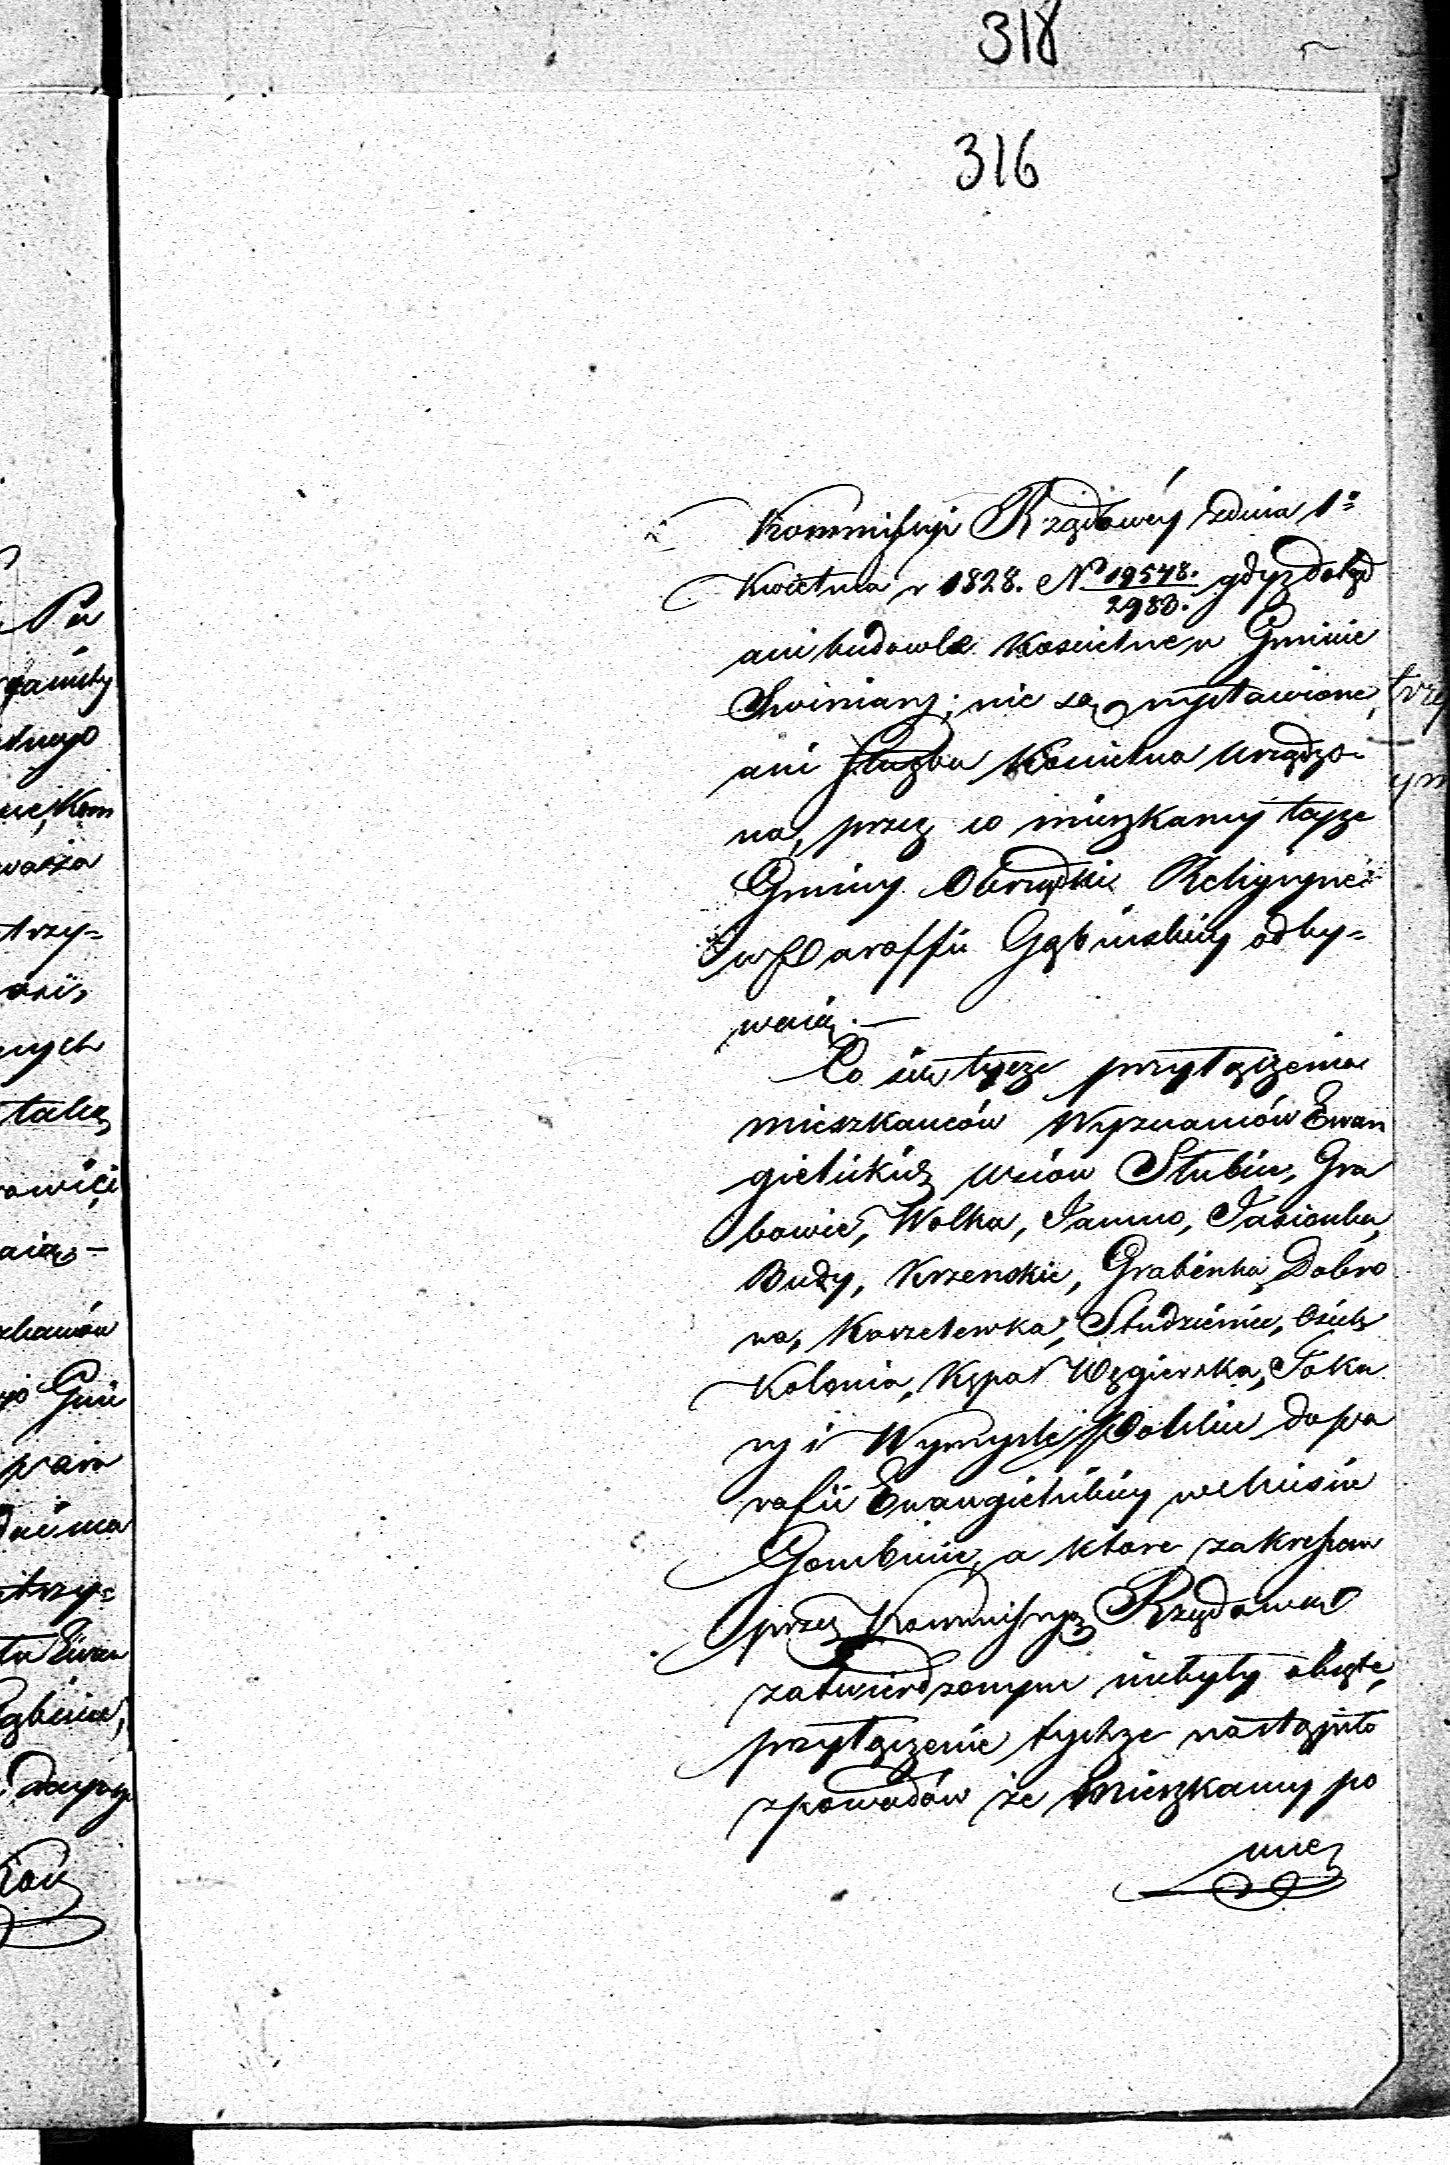 318
316
Kommissyi Rządowéy zdnia 1º
Kwietnia r 1828. Nº 19548./2983. gdyż dotąd
ani budowle Koscielne w Gminie
Swiniary; nie są wystawione,
ani służba Koscielna urządzo-
na, przez co mieszkancy teyze
Gminy Obrządki Religiyne
w Paraffii Gąbinskiey odby=
waią.—
Co się tycze przyłączenia
mieszkańców Wyznaniów Ewan
gielickich wsiów Słubice, Gra
bowiec, Wolka, Jamno, Jasionka,
Budy, Krzenskie, Grabinka, Dobro
wa, Karzelewka, Studzieniec, Osiek
Kolonia, Kępa Węgierska, Toka
ry i Wymysle Polskie do pa
rafii Ewangielickiey w Miescie
Gombinie, a ktore zakresem
przez Kommissyą Rządową
zatwierdzonym niebyły obięte,
przyłączenie tychże nastąpiło
z powodów że Mieszkancy po
Pa
Kom
trzy=
nych
taką
aią—
Gmi
para
trzy=
Ewan
trze
ym